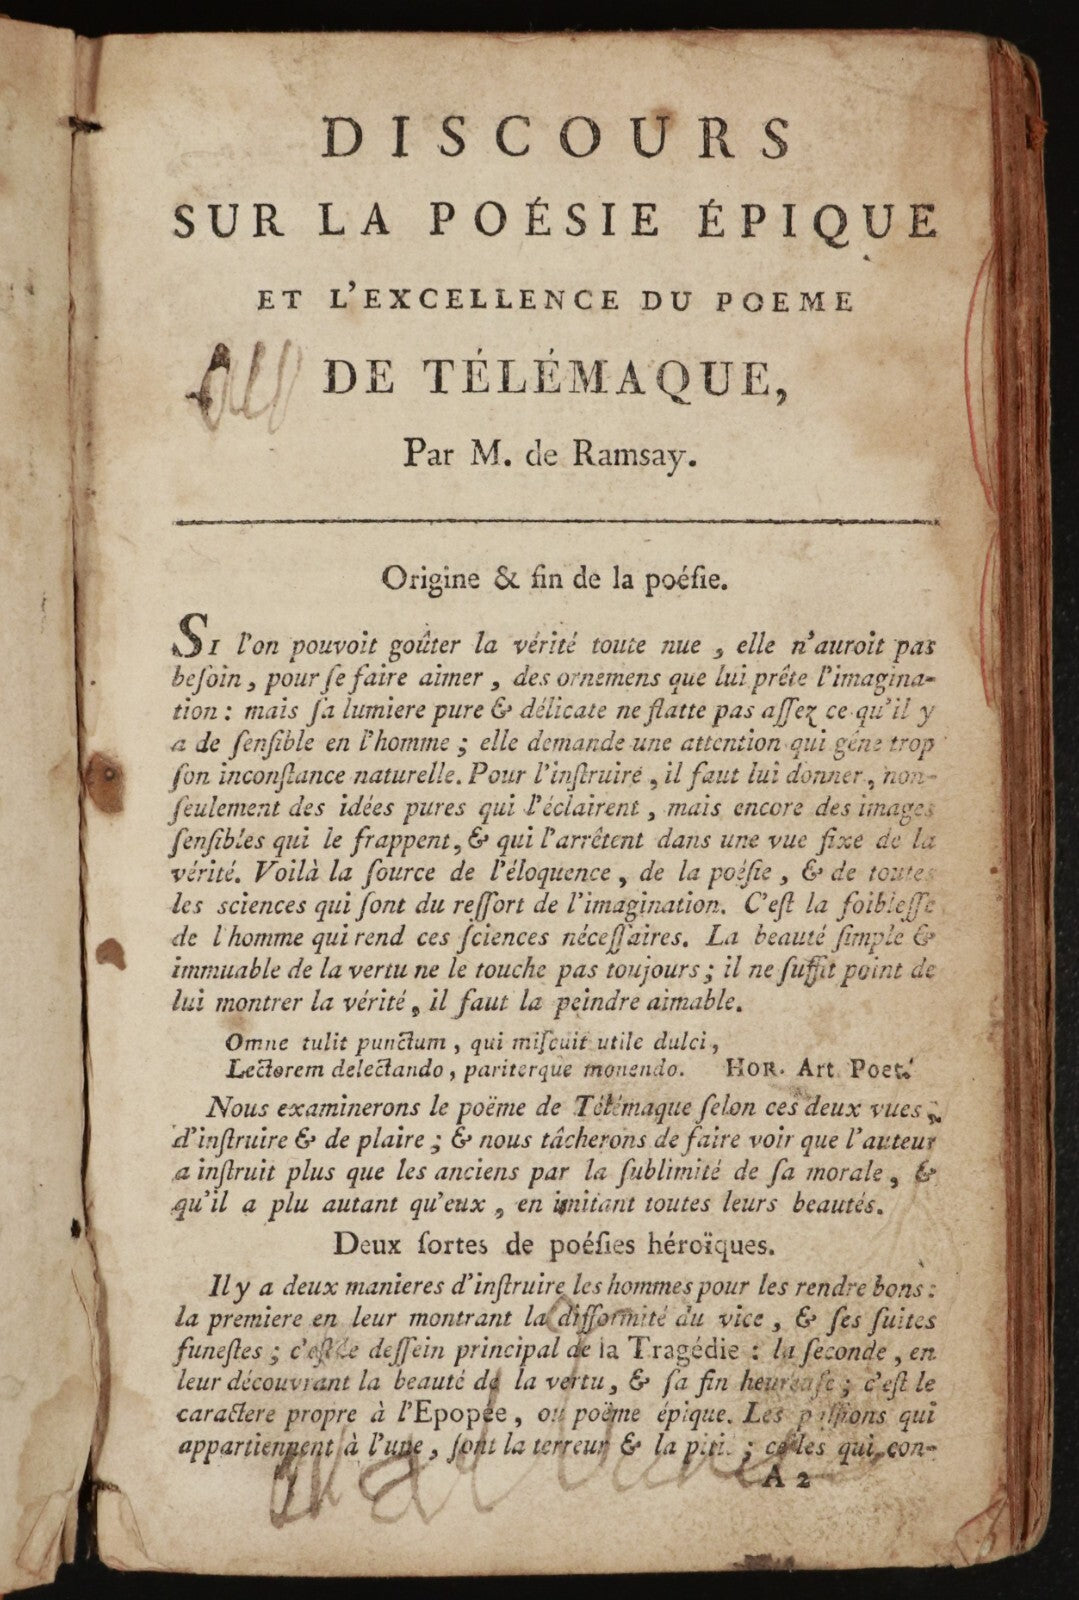 DISCOURS
SUR LA POÉSIE ÉPIQUE
ET L'EXCELLENCE DU POEME
DE TÉLÉMAQUE,
Par M. de Ramsay.
Origine & fin de la poéſie.
SI l'on pouvoit goûter la vérité toute nue, elle n'auroit pas
beſoin, pour ſe faire aimer, des ornemens que lui prête l'imagina-
tion: mais ſa lumiere pure & délicate ne flatte pas aſſez ce qu'il y
a de ſenſible en l'homme; elle demande une attention qui gêne trop
ſon inconſtance naturelle. Pour l'inſtruire, il faut lui donner, non-
ſeulement des idées pures qui l'éclairent, mais encore des images
ſenſibles qui le frappent, & qui l'arrêtent dans une vue fixe de la
vérité. Voilà la ſource de l'éloquence, de la poéſie, & de toutes
les sciences qui ſont du reſſort de l'imagination. C'eſt la foibleſſe
de l'homme qui rend ces ſciences néceſſaires. La beauté ſimple &
immuable de la vertu ne le touche pas toujours; il ne ſuffit point de
lui montrer la vérité, il faut la peindre aimable.
Omne tulit punctum, qui miſcuit utile dulci,
Lectorem delectando, pariterque monendo. HOR. Art Poet.
Nous examinerons le poëme de Télémaque ſelon ces deux vues,
d'inſtruire & de plaire; & nous tâcherons de faire voir que l'auteur
a inſtruit plus que les anciens par la ſublimité de ſa morale, &
qu'il a plu autant qu'eux, en imitant toutes leurs beautés.
Deux ſortes de poéſies héroïques.
Il y a deux manieres d'inſtruire les hommes pour les rendre bons:
la premiere en leur montrant la difformité du vice, & ſes ſuites
funeſtes; c'eſt le deſſein principal de la Tragédie: la ſeconde, en
leur découvrant la beauté de la vertu, & ſa fin heureuſe; c'eſt le
caractere propre à l'Epopée, ou poëme épique. Les paſſions qui
appartiennent à l'une, ſont la terreur & la pitié; celles qui con-
A 2